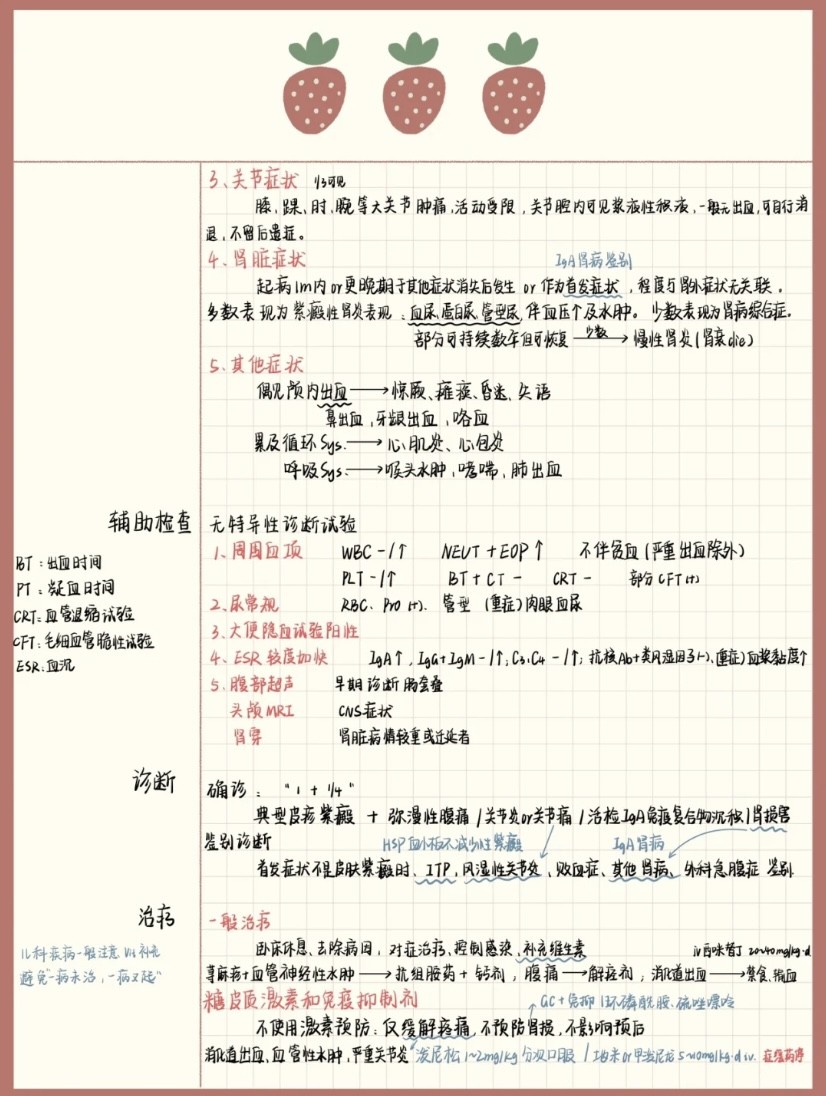 3、关节症状 1/3可见
膝、踝、肘、腕等大关节肿痛,活动受限,关节腔内可见浆液性积液,一般无出血,可自行消
退,不留后遗症。
4、肾脏症状 IgA肾病鉴别
起病1m内or更晚期于其他症状消失后发生 or 作为首发症状,程度与肾外症状无关联,
多数表现为紫癜性肾炎表现:血尿、蛋白尿、管型尿,伴血压↑及水肿。少数表现为肾病综合症。
部分可持续数年但可恢复 少数→ 慢性肾炎(肾衰die)
5、其他症状
偶见颅内出血→惊厥、瘫痪、昏迷、失语
鼻出血,牙龈出血,咯血
累及循环Sys.→心肌炎、心包炎
呼吸Sys→喉头水肿,哮喘,肺出血
辅助检查 无特异性诊断试验
1、周围血项 WBC -/↑ NEUT+EOP↑ 不伴贫血(严重出血除外)
BT:出血时间
PLT -/↑ BT+CT - CRT - 部分CFT(+)
PT:凝血时间
2、尿常规 RBC、Pro(+)、管型 (重症)肉眼血尿
CRT:血管退缩试验
3、大便隐血试验阳性
CFT:毛细血管脆性试验
4、ESR轻度加快 IgA↑,IgG+IgM -/↑;C3、C4 -/↑;抗核Ab+类风湿因子(-)、(重症)血浆黏度↑
ESR:血沉
5、腹部超声 早期诊断肠套叠
头颅MRI CNS症状
肾穿 肾脏病情较重或迁延者
诊断 确诊: “1+1/4”
典型皮疹紫癜 + 弥漫性腹痛/关节炎or关节痛/活检IgA免疫复合物沉积/肾损害
鉴别诊断 HSP血小板不减少性紫癜 IgA肾病
首发症状不是皮肤紫癜时、ITP、风湿性关节炎、败血症、其他肾病、外科急腹症 鉴别
治疗 一般治疗
卧床休息、去除病因,对症治疗、控制感染、补充维生素 iv西咪替丁 20~40mg/kg·d
儿科疾病一般注意 Vit补充
避免“一病未治,一病又起”
荨麻疹+血管神经性水肿→抗组胺药+钙剂,腹痛→解痉剂,消化道出血→禁食、输血
糖皮质激素和免疫抑制剂 ↑GC+免抑(环磷酰胺、硫唑嘌呤
不使用激素预防:仅缓解疼痛,不预防肾损,不影响预后
消化道出血、血管性水肿,严重关节炎 泼尼松1~2mg/kg 分次口服 / 地米or甲泼尼龙5~10mg/kg·d iv. 症缓药停